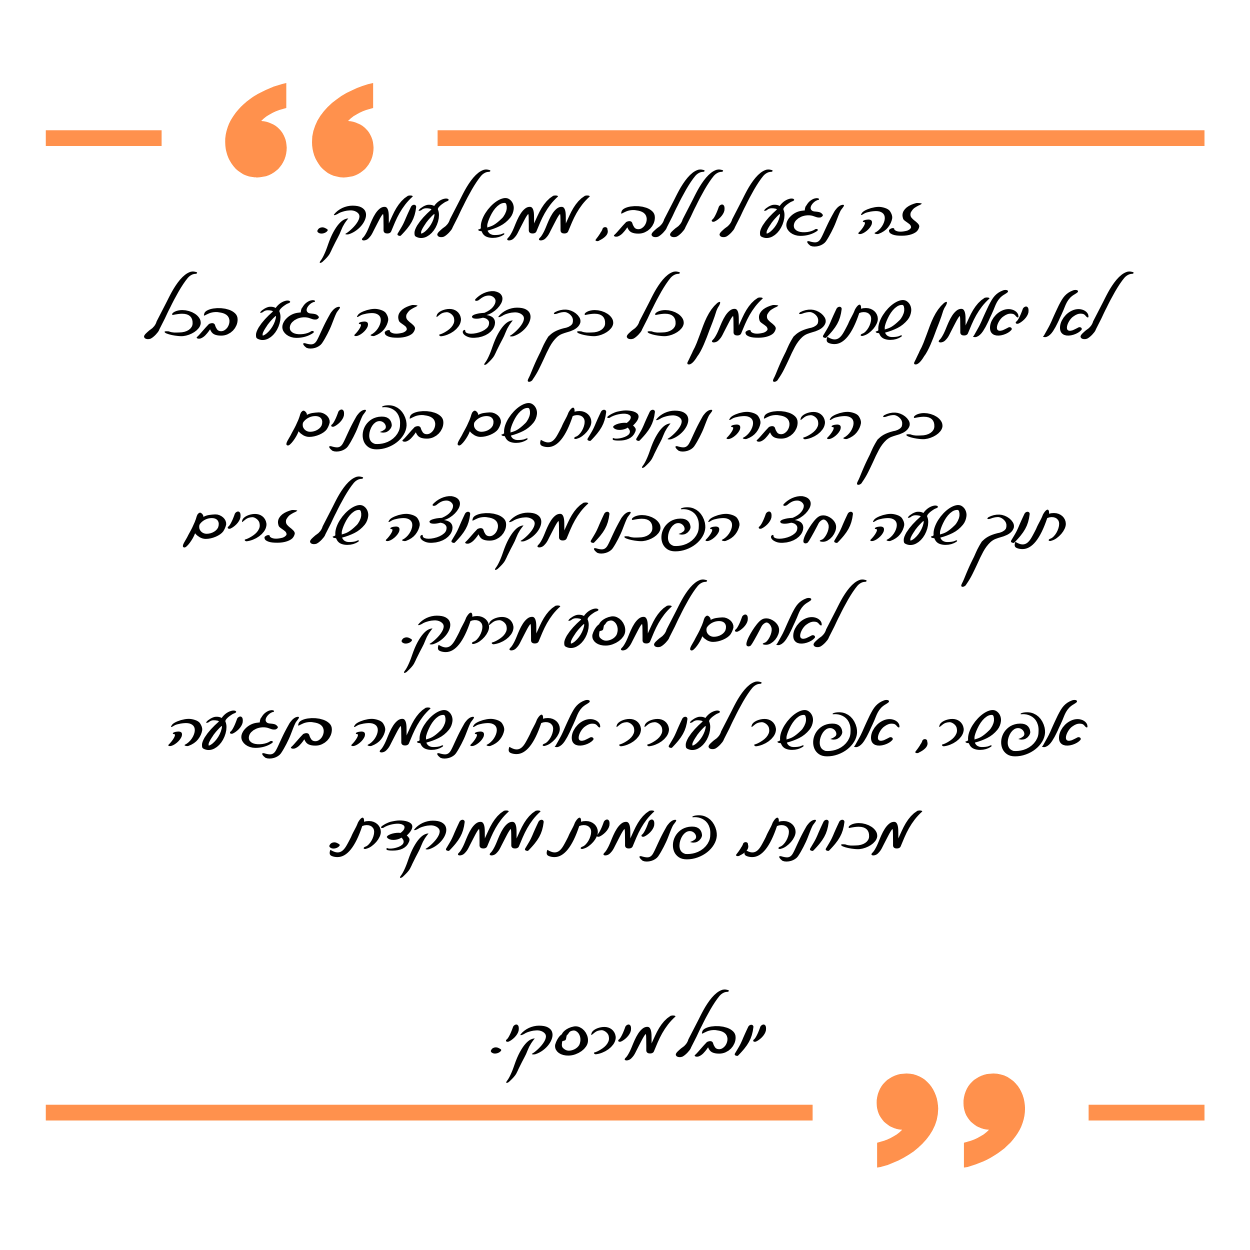 זה נגע לי ללב, ממש לעומק.
לא יאמן שתוך זמן כל כך קצר זה נגע בכל
כך הרבה נקודות שם בפנים
תוך שעה וחצי הפכנו מקבוצה של זרים
לאחים למסע מרתק.
אפשר, אפשר לעורר את הנשמה בנגיעה
מכוונת, פנימית וממוקדת.
יובל מירסקי.